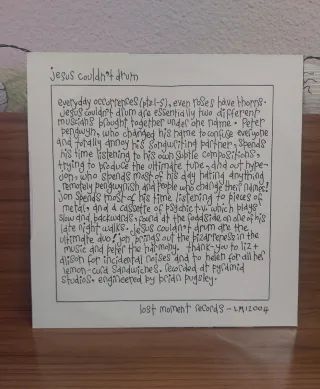 jesus couldn't drum
everyday occurrences (pts 1-5), even roses have thorns.
jesus couldn't drum are essentially two different
musicians brought together under one name. peter
pengwyn, who changed his name to confuse everyone
and totally annoy his songwriting partner, spends
his time listening to his own subtle compositions,
trying to produce the ultimate tune, and out hype-
jon, who spends most of his day hating anything
remotely pengwynish and people who change their names!
jon spends most of his time listening to pieces of
metal and a cassette of psychic t.v. which plays
slow and backwards, found at the roadside on one of his
late night walks. jesus couldn't drum are the
ultimate duo! jon brings out the bizarreness in the
music and peter the harmony. thank-you to liz +
alison for incidental noises and to helen for all her
lemon-curd sandwiches. recorded at pyramid
studios. engineered by brian pugsley.
lost moment records - LM12004